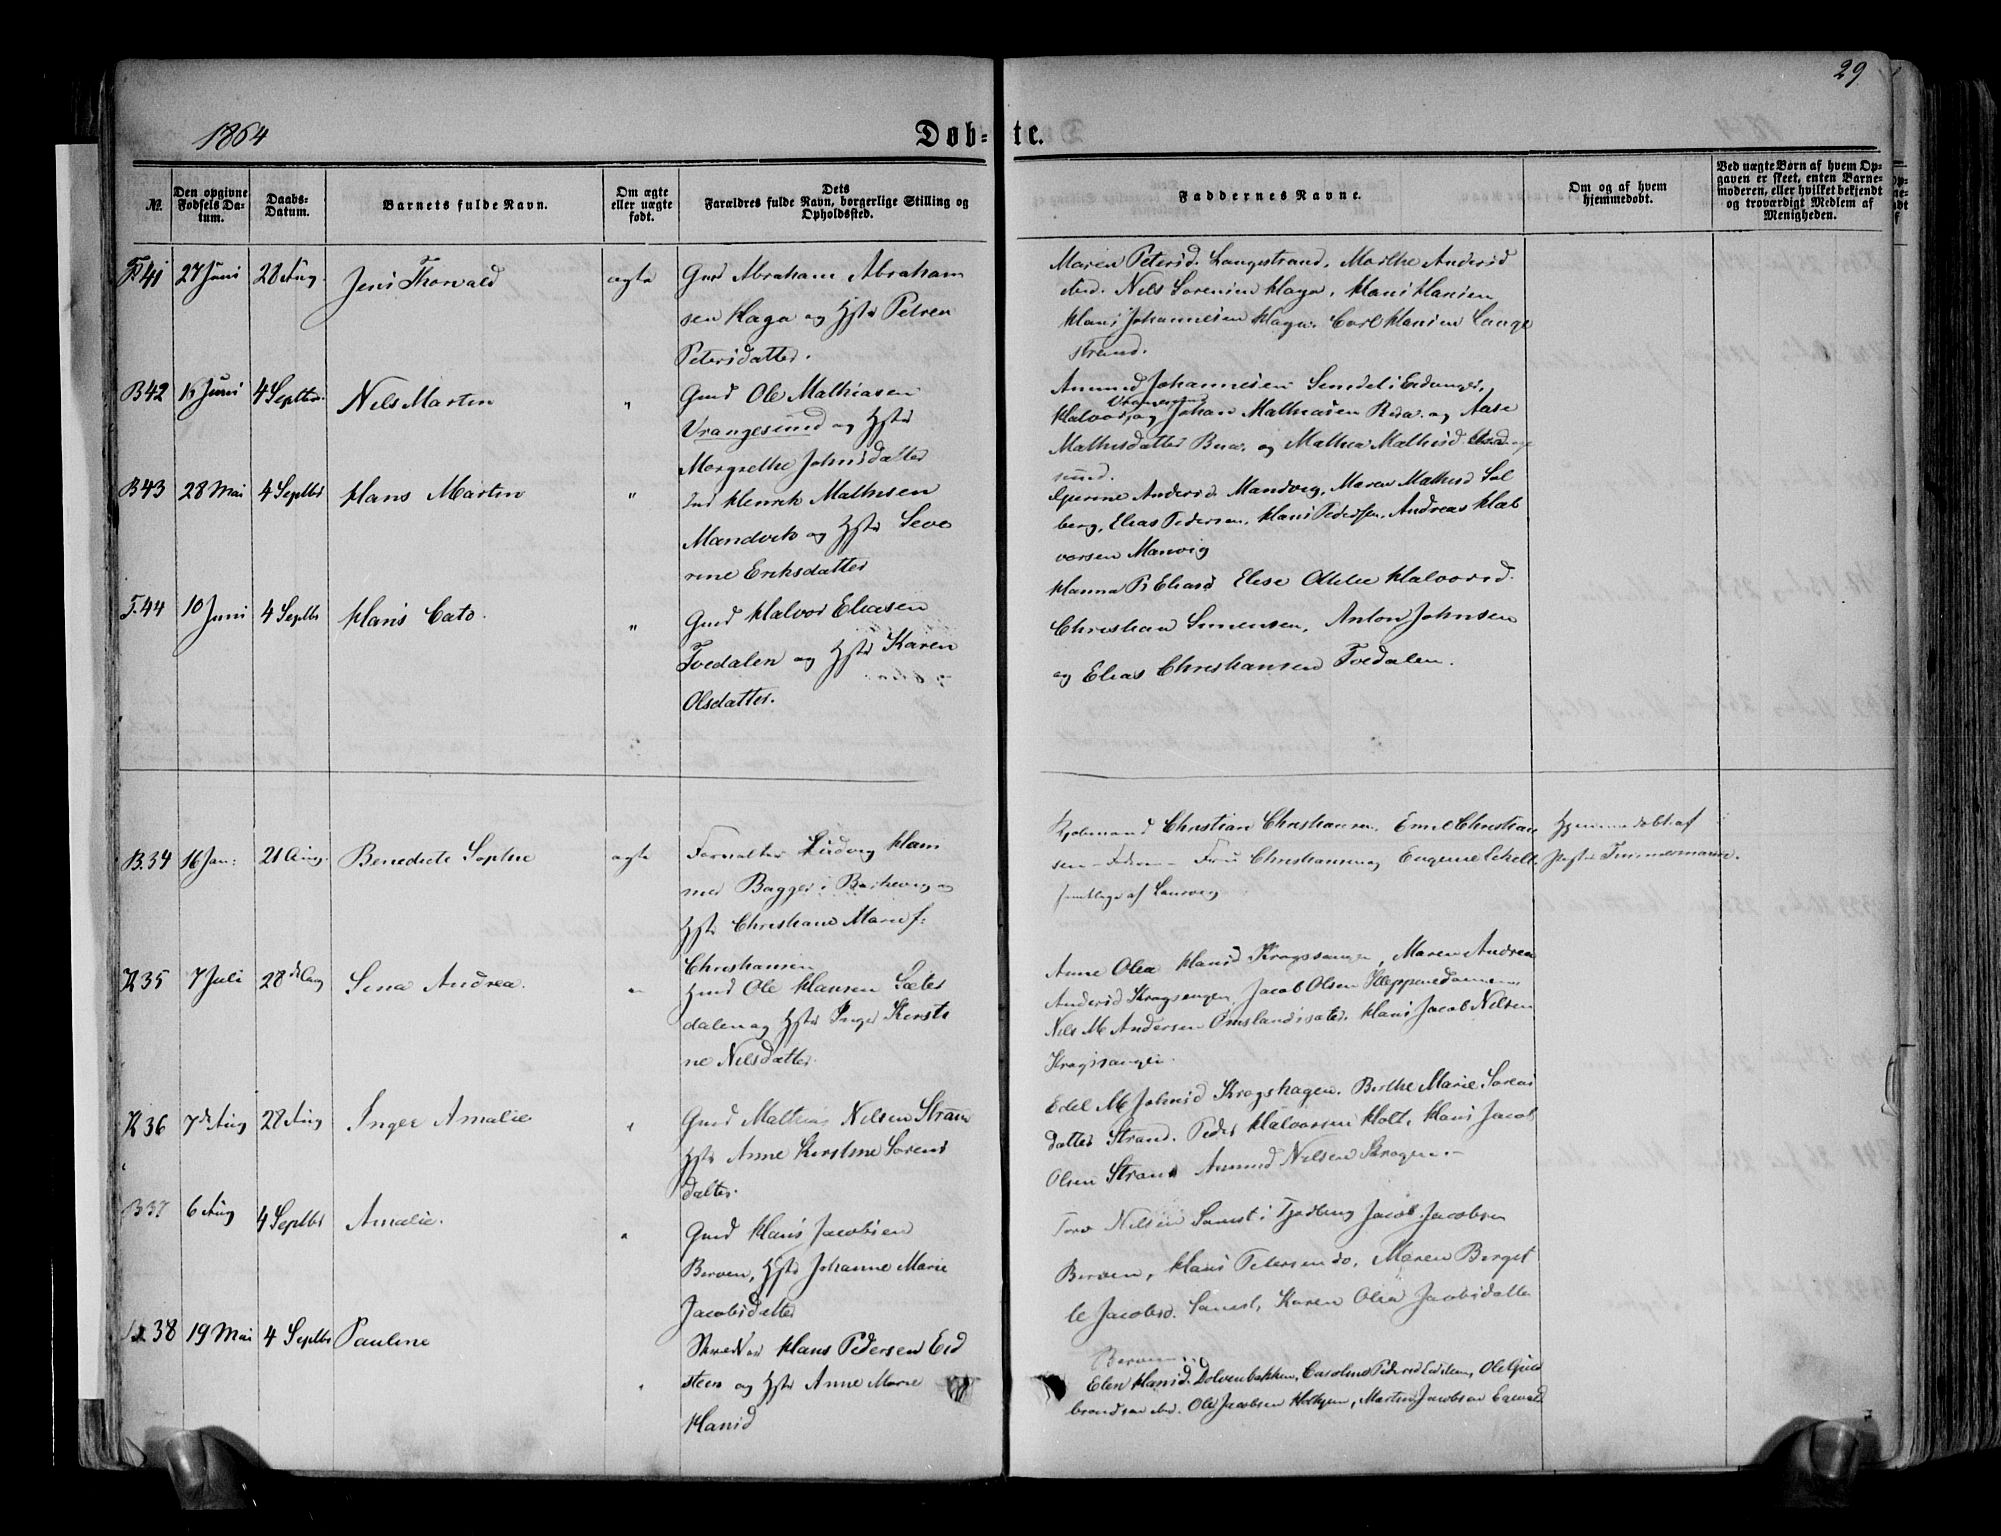 29
1864
Døb-te.
No.
Den opgivne Fødsels Datum.
Daabs-Datum.
Barnets fulde Navn.
Om ægte eller uægte født.
Dets Forældres fulde Navn, borgerlige Stilling og Opholdssted.
Faddernes Navne.
Om og af hvem hjemmedøbt.
Ved uægte Børn af hvem Opgaven er skeet, enten Barnemoderen, eller hvilket bekjendt og troværdigt Medlem af Menigheden.
41 27 Juni 28 Aug. Jens Thorvald ægte
Gmd Abraham Abraham
sen Haga og Hstr Petren
Petersdatter.
Maren Petersd. Langestrand, Marthe Andersd
Nils Sørensen Haga, Hans Hansen
Hans Johannesen Haga. Carl Hansen Lange
strand.
B 42 Juni 4 Septbr. Nils Martin "
Gmd Ole Mathiasen
Vrangesund og Hstr
Margrethe Johnsdatter
Amund Johannesen i Eidanger,
Halvor og Johan Mathiasen og Aase
Mathisdatter og Mathea Mathisd
sund.
B 43 28 Mai 4 Septbr Hans Martin "
Henrik Mathisen
Mandvik og Hstr Seve
rine Eriksdatter
Gurine Andersd. Mandvig, Maren Mathisd Sol
berg, Elias Pedersen, Hans Pedersen, Andreas Hal
vorsen Manvig
T. 44 10 Juni 4 Septbr Hans Cato. "
Gmd Halvor Eliasen
Tvedalen og Hstr Karen
Olsdatter.
Hanna B Eliasd Elise Halvorsd.
Christian Simensen, Anton Johnsen
og Elias Christiansen Tvedalen.
B. 34 16 Jan: 21 Aug. Benedicte Sophie ægte
Forvalter Ludvig Ham
mer Bagger i og
Hstr Christiane Marie f:
Christiansen
Kjøbmand Christian Christiansen, Emil Christian
sen Fru Christiansen og Eugenie
samtlige af Laurvig
Hjemmedøbt af
Pastor Timmermann.
K 35 7 Juli 28de Aug Sina Andrea. "
Gmd Ole Hansen Sæter
dalen og Hstr Inger Kirsti
ne Nilsdatter.
Anne Olea Hansd Maren Andrea
Andersd Jacob Olsen
Nils M Andersen Omslandsæter. Hans Jacob Nilsen
K 36 7de Aug 28 Aug Inger Amalie "
Gmd Mathias Nilsen Strand
Hstr Anne Kirstine Sørens
datter.
Edel M Johnsd Kragshagen. Berthe Marie Sørens
datter Strand. Peder Halvorsen Holt, Hans Jacob
Olsen Strand Amund Nilsen
B 37 6 Aug 4 Septbr Amalie. "
Gmd Hans Jacobsen
Berven, Hstr Johanne Marie
Jacobsdatter
Nilsen i Tjødling Jacob Jacobsen
Berven, Hans Petersen do, Maren Berget
te Jacobsd. Karen Olea Jacobsdatter
Berven
38 19 Mai 4 Septbr Pauline "
Hans Pedersen Eid
sten og Hstr Anne Marie
Hansd
Elen Hansd. Dolvenbakken, Caroline Pedersd Eidsten, Ole Gul
brandsen Ole Jacobsen Martin Jacobsen